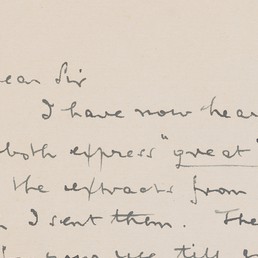 ear Sir
I have now hear
both express "great"
the extracts from
I sent them. The
till